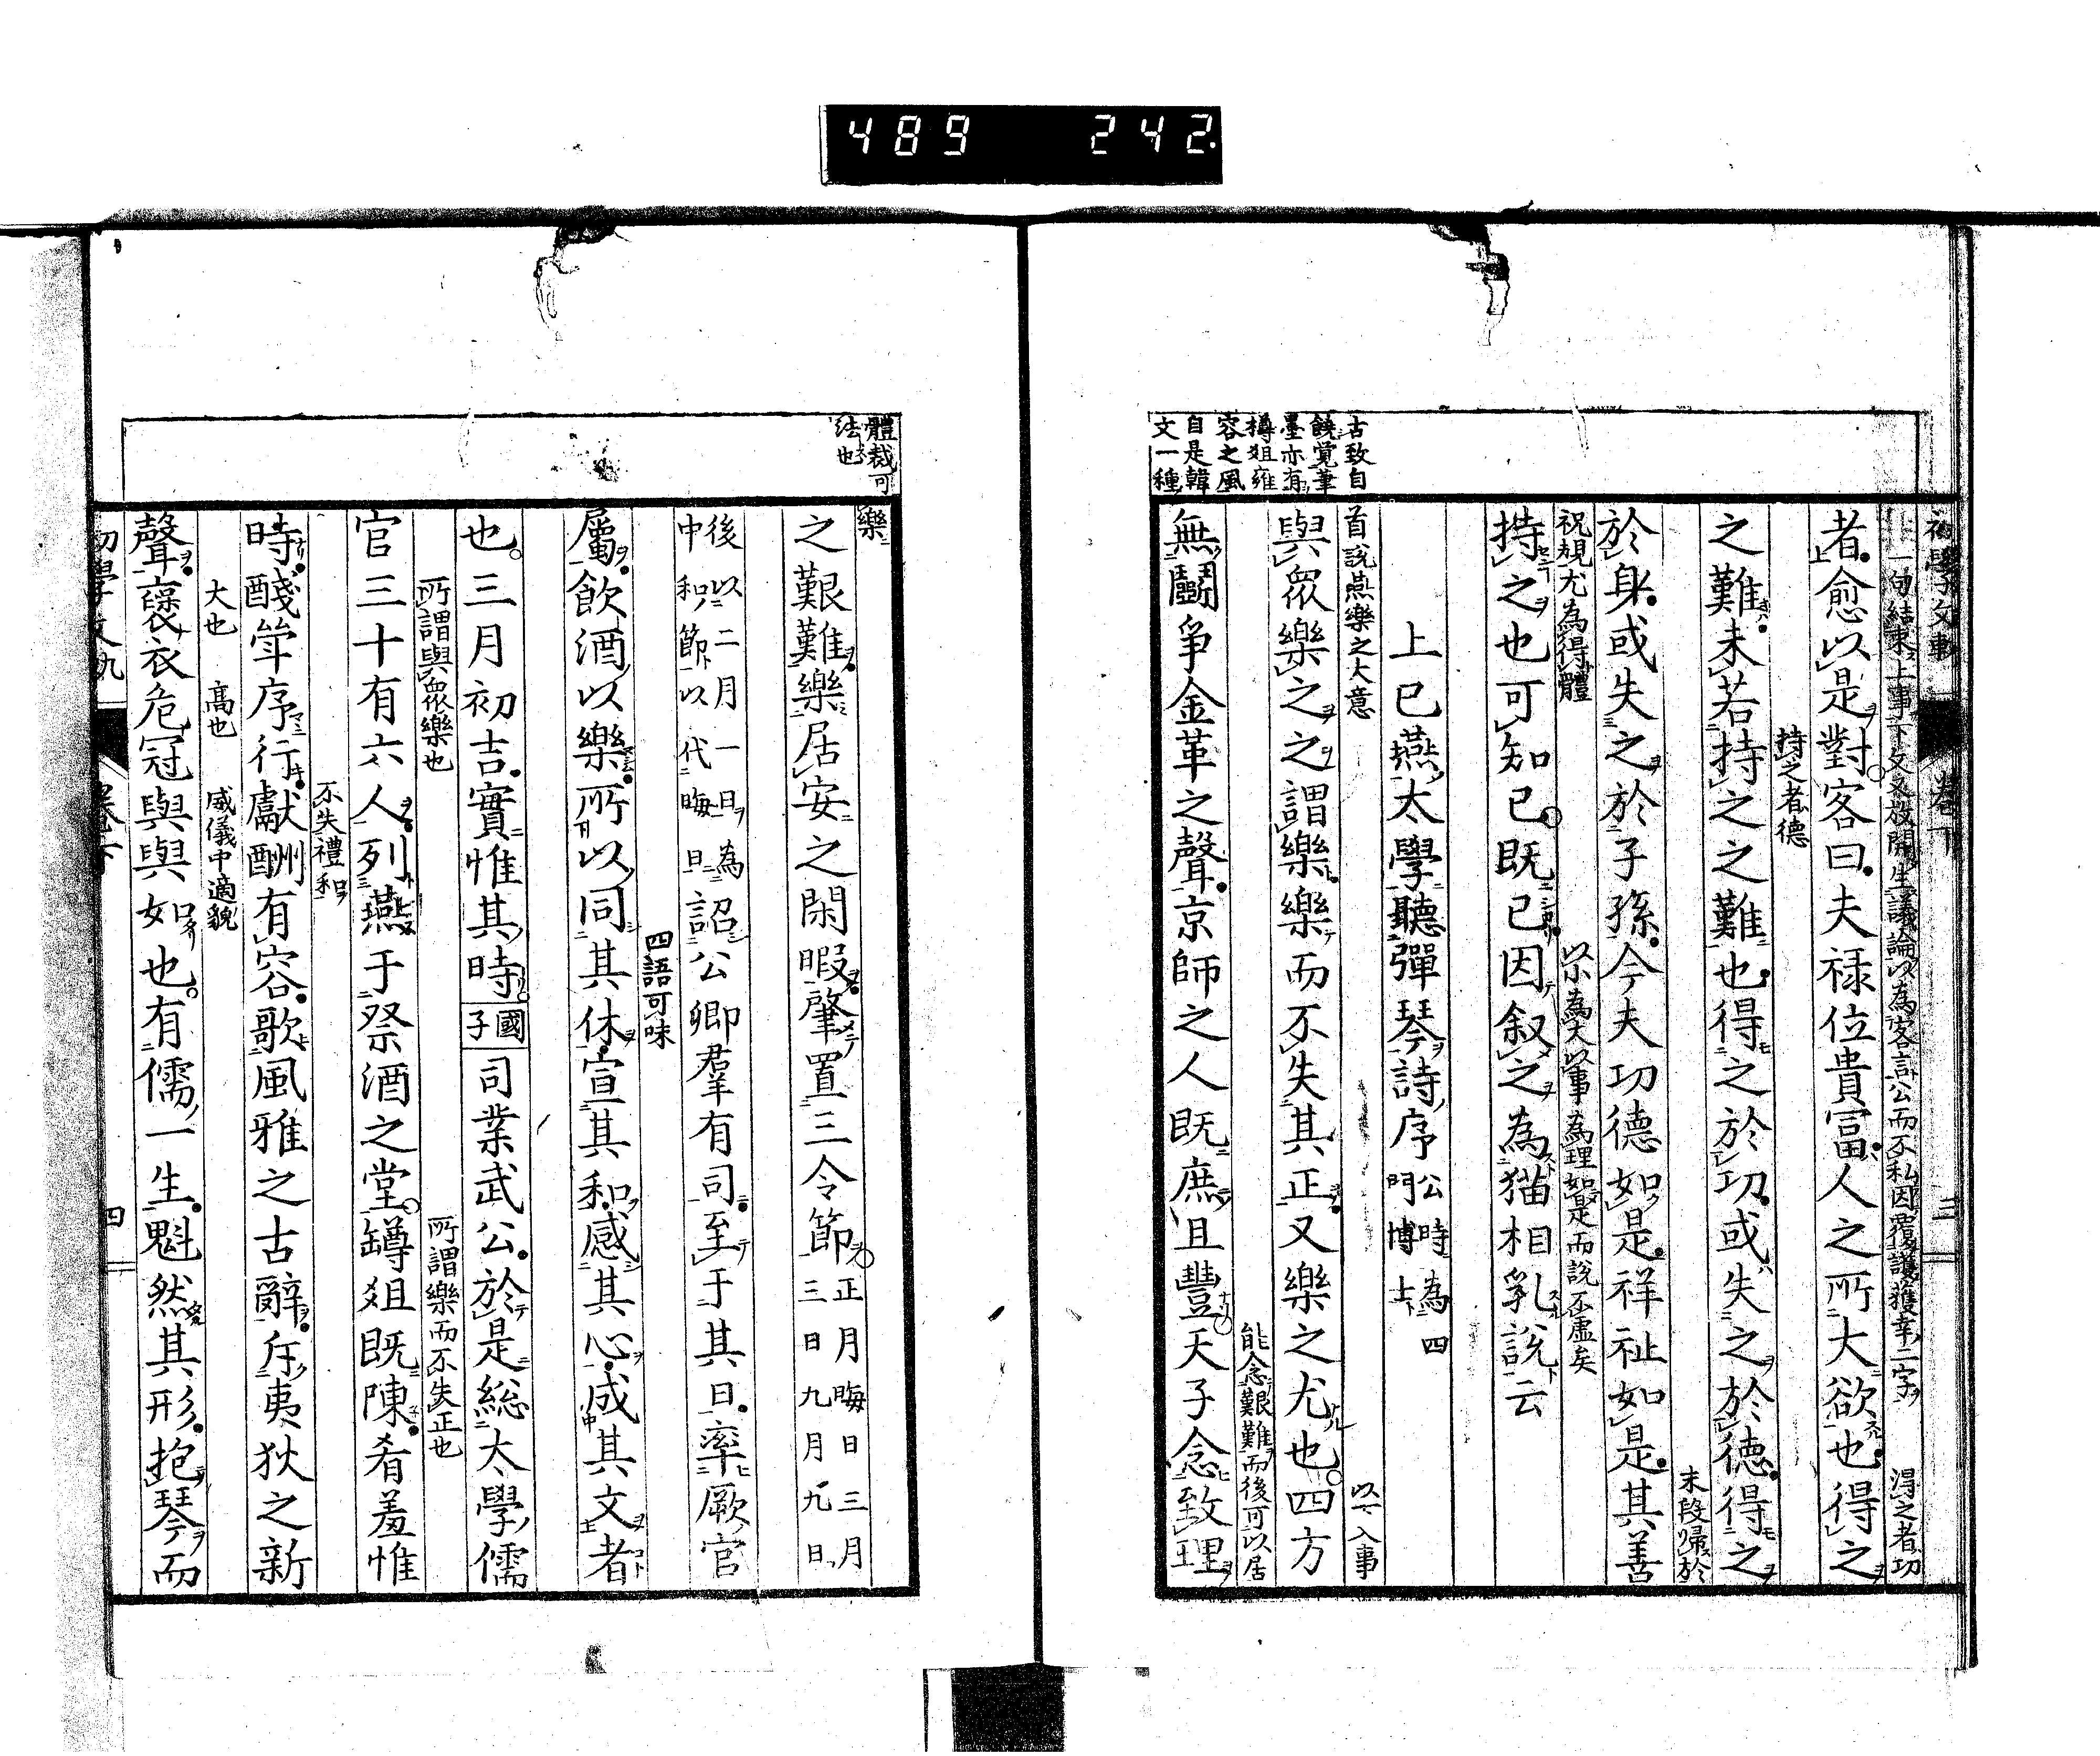 489 242.
初學文軌 卷下 三
一句結束上事下文又放開生議論以為客言公而不私因覆護獲幸二字 得之者功
者愈以是對客曰夫禄位貴富人之所大欲也得之
持之者德
之難未若持之之難也得之於功或失之於德得之
末段歸於
於身或失之於子孫今夫功德如是祥祉如是其善
祝規尤為得體 以小為大以事為理如是而說不虛矣
持之也可知已既已因叙之為猫相乳說云
上巳燕太學聽彈琴詩序 公時為四門博士
首說燕樂之大意 以下入事
與眾樂之之謂樂樂而不失其正又樂之尤也四方
能念艱難而後可以居
無鬪爭金革之聲京師之人既庶且豐天子念致理
古致自
饒覺筆
墨亦有
樽俎雍
容之風
自是韓
文一種
體裁可
法也
樂
之艱難樂居安之閑暇肇置三令節 正月晦日三月三日九月九日
後以二月一日為中和節以代晦日 詔公卿羣有司至于其日率厥官
四語可味
屬飲酒以樂所以同其休宣其和感其心成其文者
也三月初吉實惟其時 國子 司業武公於是總太學儒
所謂與眾樂也 所謂樂而不失正也
官三十有六人列燕于祭酒之堂罇俎既陳肴羞惟
不失禮和
時醆斝序行獻酬有容歌風雅之古辭斥夷狄之新
大也 高也 威儀中適貌
聲襃衣危冠與與如也有儒一生魁然其形抱琴而
初學文軌 卷下 四